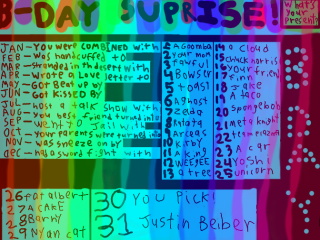 B-DAY SUPRISE!
what's
your
present?
JAN - You were COMBINED with
FEB - Was handcuffed to
MAR - stranded in the desert with
APR - Wrote a Love letter to
MAY - Got Beat up by
JUN - Got KISSED BY
JUL - host a talk show with
AUG - You best friend turned into
SEP - went to Jail with
Oct - your parents were turned into
NOV - was sneeze on by
dec - had a sword fight with
1 A Goomba
2 your mom
3 Wafful
4 Bowser
5 toast
6 A ghost
7 Zelda
8
9 Arceas
10 Kirby
11 A King
12 WEEJEE
13 a tree
14 a cloud
15 chuck norris
16 your friend
17 Finn
18 Jake
19 A taco
20 Spongebob
21 Metaknight
22
23 A car
24 Yoshi
25 unicorn
26 fat albert
27 A CAKE
28 Barny
29 Nyan cat
30 You Pick!
31 Justin Beiber